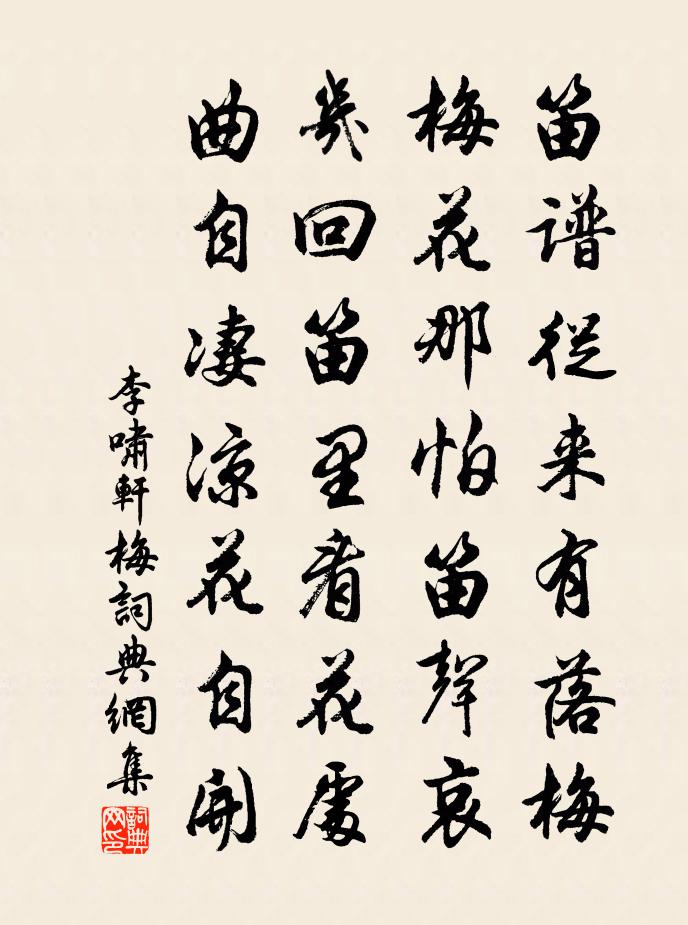 笛谱従来有落梅
梅花那怕笛聲哀
幾回笛里看花處
曲自凄凉花自開
李嘯軒梅詞典網集
詞典网印